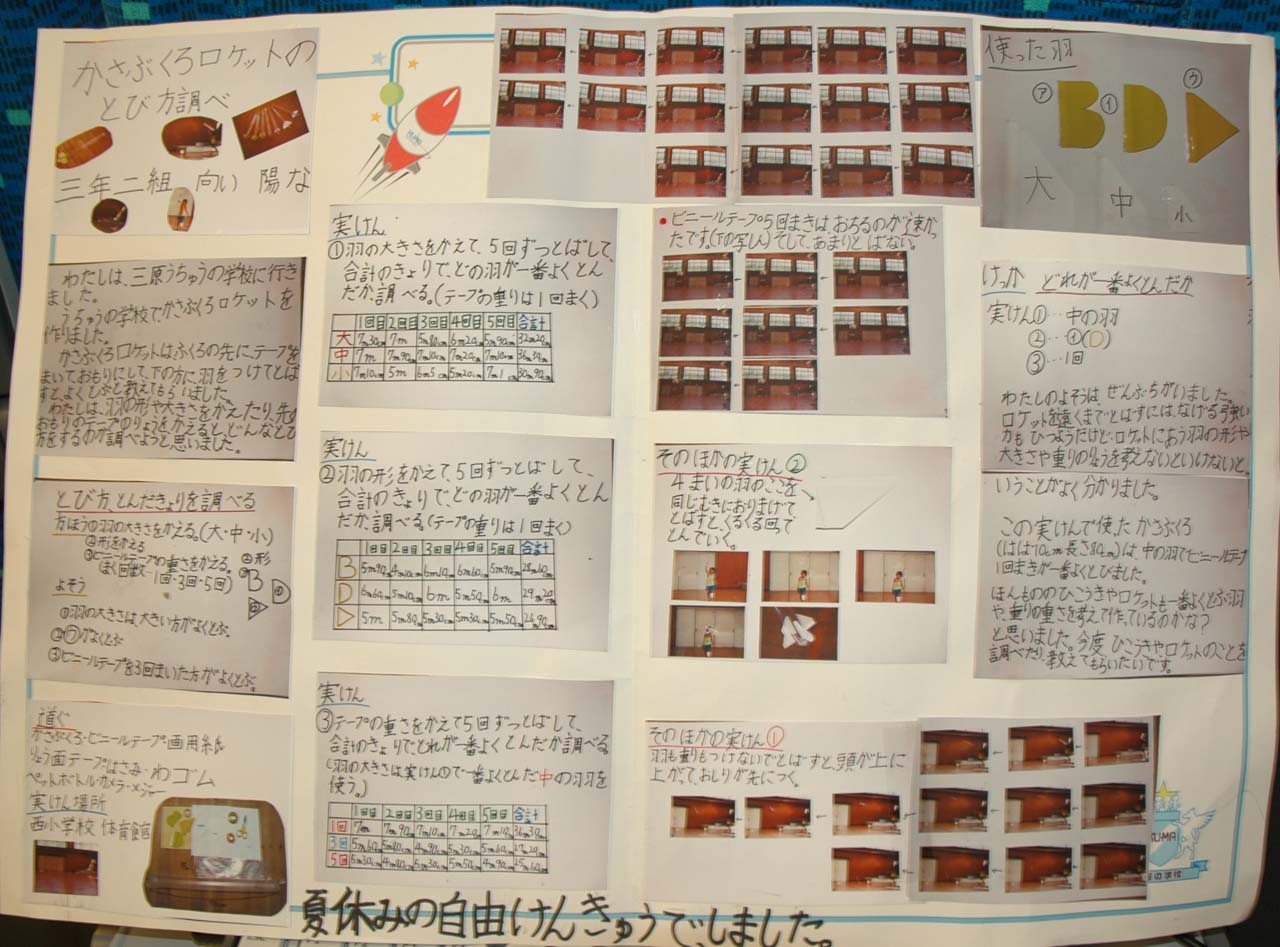 かさぶくろロケットの
とび方調べ
三年二組 向い 陽な
わたしは、三原うちゅうの学校に行き
ました。
うちゅうの学校でかさぶくろロケットを
作りました。
かさぶくろロケットはふくろの先にテープを
まいておもりにして、下の方に羽をつけてとば
すと、よくとぶと教えてもらいました。
わたしは、羽の形や大きさをかえたり、先の
おもりのテープのりょうをかえると、どんなとび
方をするのか調べようと思いました。
とび方、とんだきょりを調べる
方ほう①羽の大きさをかえる。(大・中・小)
②形をかえる
③ビニールテープの重さをかえる。
(まく回数…1回・3回・5回)
②形
㋐B
㋑D
㋒▷
よそう
①羽の大きさは、大きい方がよくとぶ。
②㋒がよくとぶ
③ビニールテープを3回まいた方がよくとぶ。
道ぐ
かさぶくろ・ビニールテープ・画用紙
りょう面テープ・はさみ・わゴム
ペットボトル・カメラ・メジャー
実けん場所
西小学校 体育館
実けん
①羽の大きさをかえて、5回ずつとばして、
合計のきょりで、どの羽が一番よくとん
だか、調べる。(テープの重りは1回まく)
1回目 2回目 3回目 4回目 5回目 合計
大 7m30cm 7m 5m80cm 6m20cm 5m90cm 32m20cm
中 7m 7m90cm 7m10cm 7m20cm 7m10cm 36m30cm
小 7m10cm 5m 6m5cm 5m20cm 7m1cm 30m90cm
実けん
②羽の形をかえて、5回ずつとばして、
合計のきょりで、どの羽が一番よくとん
だか、調べる。(テープの重りは1回まく)
1回目 2回目 3回目 4回目 5回目 合計
B 5m90cm 4m10cm 6m10cm 6m60cm 5m90cm 28m60cm
D 6m60cm 5m10cm 6m 5m50cm 6m 29m20cm
▷ 5m 5m80cm 5m30cm 5m30cm 5m50cm 26m90cm
実けん
③テープの重さをかえて5回ずつとばして、
合計のきょりでどれが一番よくとんだか調べる
(羽の大きさは、実けん①で一番よくとんだ中の羽を
使う。)
1回目 2回目 3回目 4回目 5回目 合計
1回 7m 7m90cm 7m10cm 7m20cm 7m10cm 36m30cm
3回 5m60cm 5m80cm 4m90cm 5m30cm 5m60cm 27m20cm
5回 6m30cm 4m80cm 5m30cm 5m50cm 4m90cm 25m60cm
●ビニールテープ5回まきは、おちるのが速か
ったです。(下の写しん)そして、あまりとばない。
そのほかの実けん②
4まいの羽のここを
同じむきにおりまげて、
とばすと、くるくる回って
とんでいく。
そのほかの実けん①
羽も重りもつけないでとばすと、頭が上に
上がって、おしりが先につく。
使った羽
㋐ ㋑ ㋒
大 中 小
けっか どれが一番よくとんだか
実けん①…中の羽
②…㋑(D)
③…1回
わたしのよそうは、ぜんぶちがいました。
ロケットを遠くまでとばすには、なげる強い
力もひつようだけど、ロケットにあう羽の形や
大きさや重りのりょうを考えないといけないと。
いうことがよく分かりました。
この実けんで使ったかさぶくろ
(はば10cm長さ80cm)は、中の羽でビニールテープ
1回まきが一番よくとびました。
ほんもののひこうきやロケットも一番よくとぶ羽
や、重りの重さを考えて作っているのかな?
と思いました。今度ひこうきや、ロケットのことを
調べたり、教えてもらいたいです。
夏休みの自由けんきゅうで、しました。